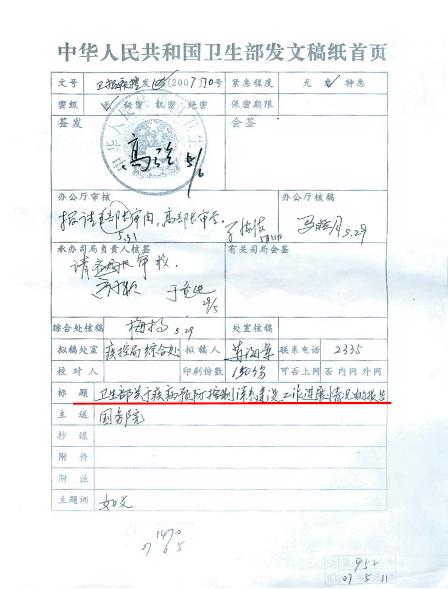 中华人民共和国卫生部发文稿纸首页
文号 发 [2007] 70号 紧急程度 无 急 特急
密级 秘密 机密 绝密 保密期限
签发 会签
高强 5/6
办公厅审核 办公厅核稿
5.31 5.29
承办司局负责人核签 有关司局会签
请 审核
29/5
综合处核稿 5.29 处室核稿
拟稿处室 疾控局综合处 拟稿人 联系电话 2335
校对人 印刷份数 150份 可否上网 否 内网 外网
标题 卫生部关于疾病预防控制体系建设工作进展情况的报告
主送 国务院
抄送
附件
附注
主题词 如文
1470
07 6 5
952
07 5 31